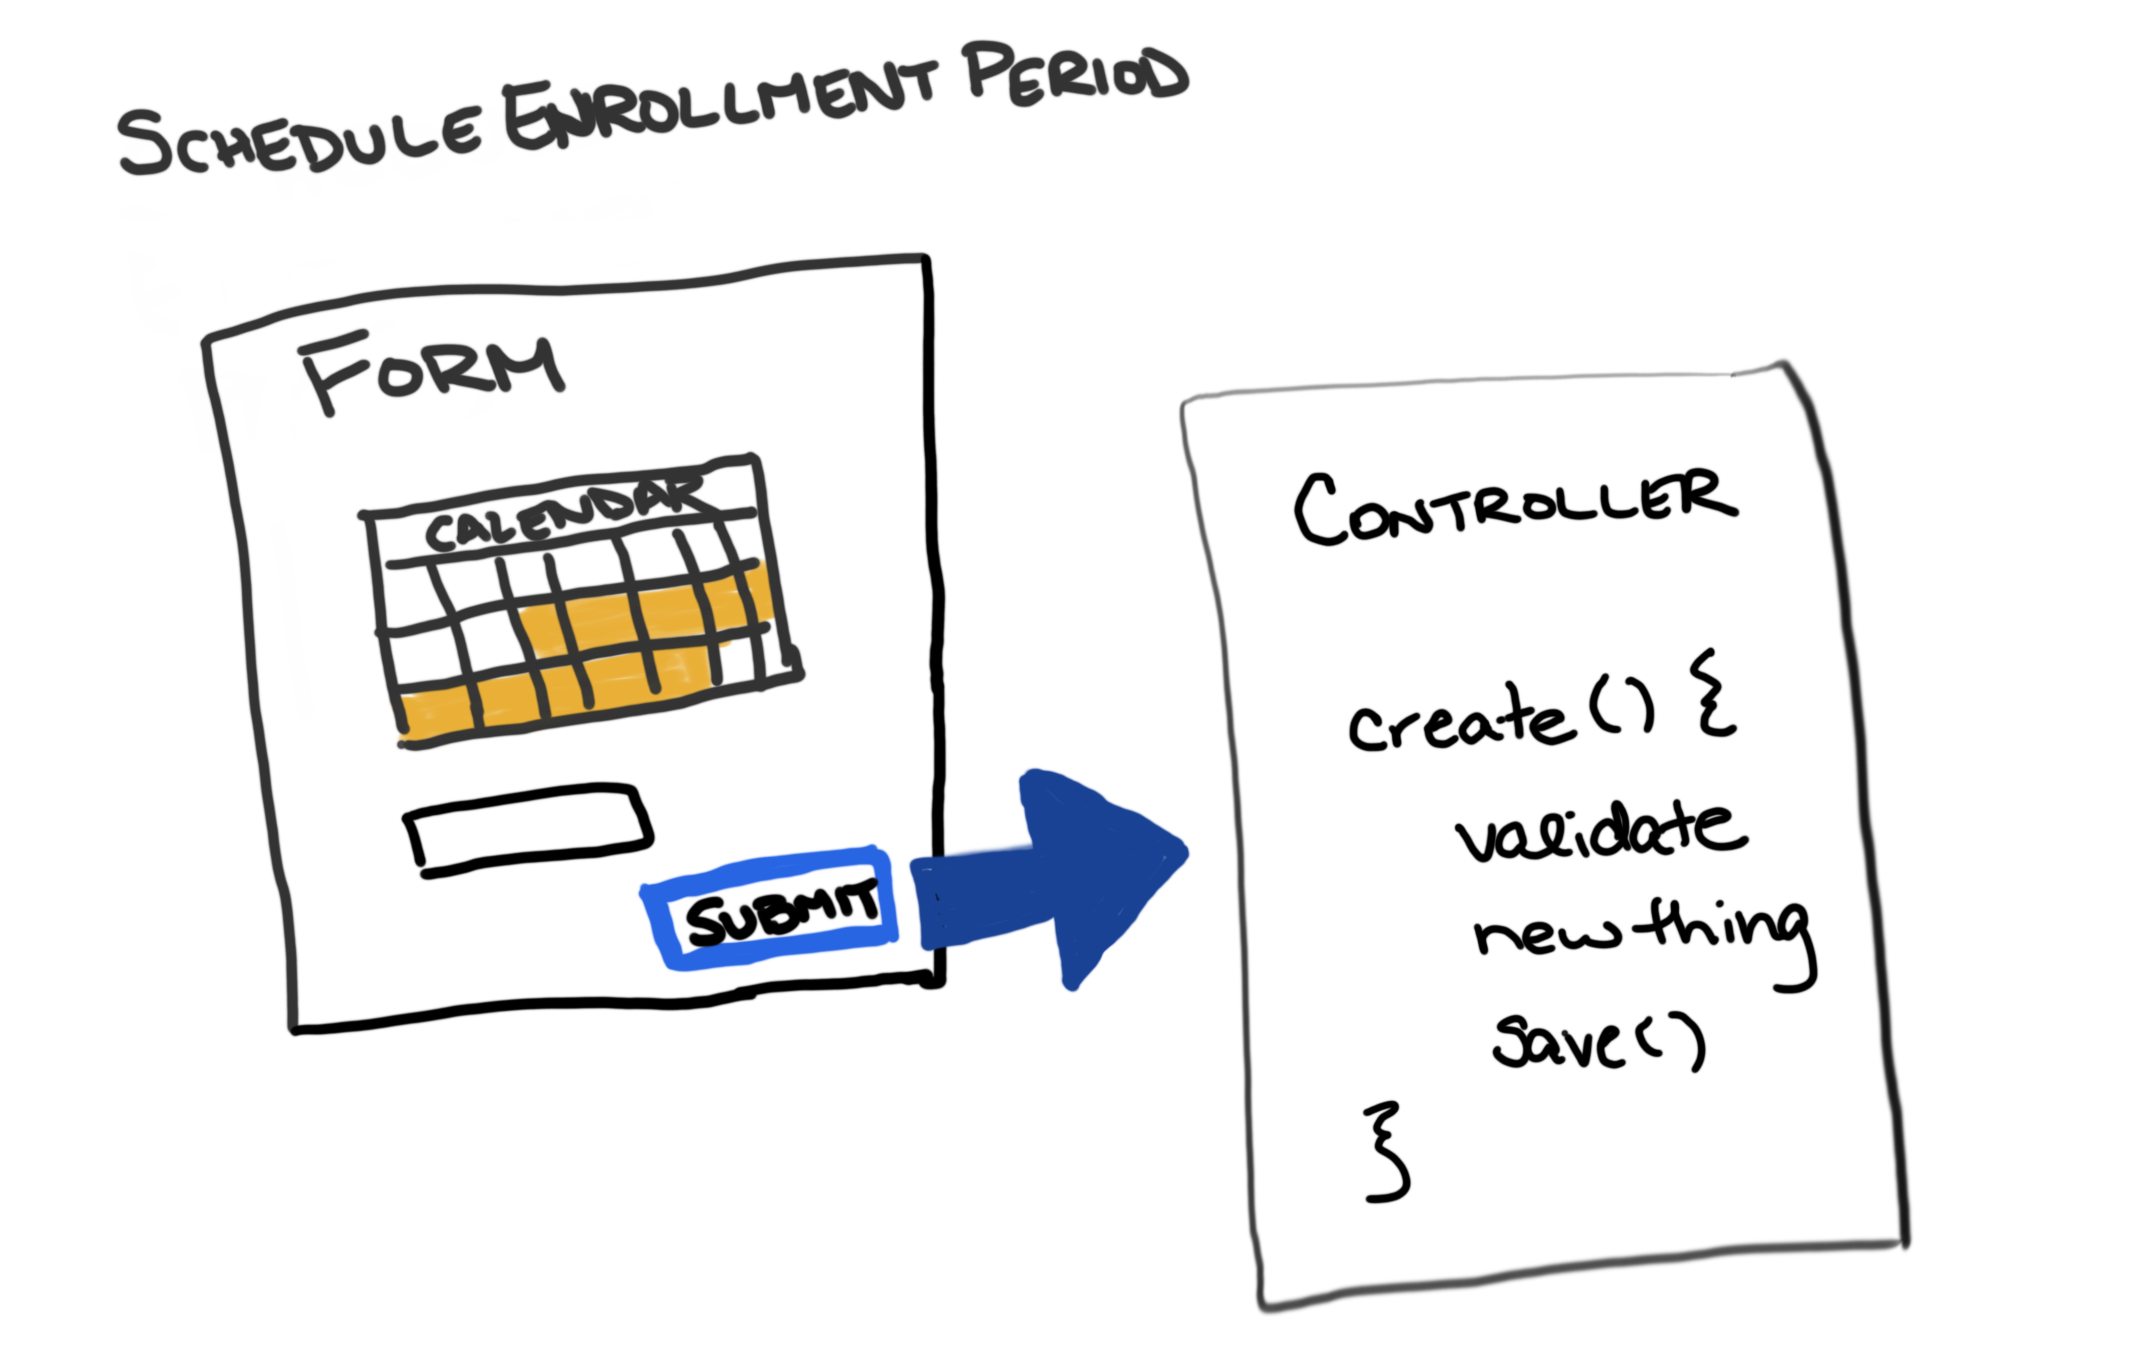 SCHEDULE ENROLLMENT PERIOD
FORM
CALENDAR
SUBMIT
CONTROLLER
create() {
validate
new thing
save()
}